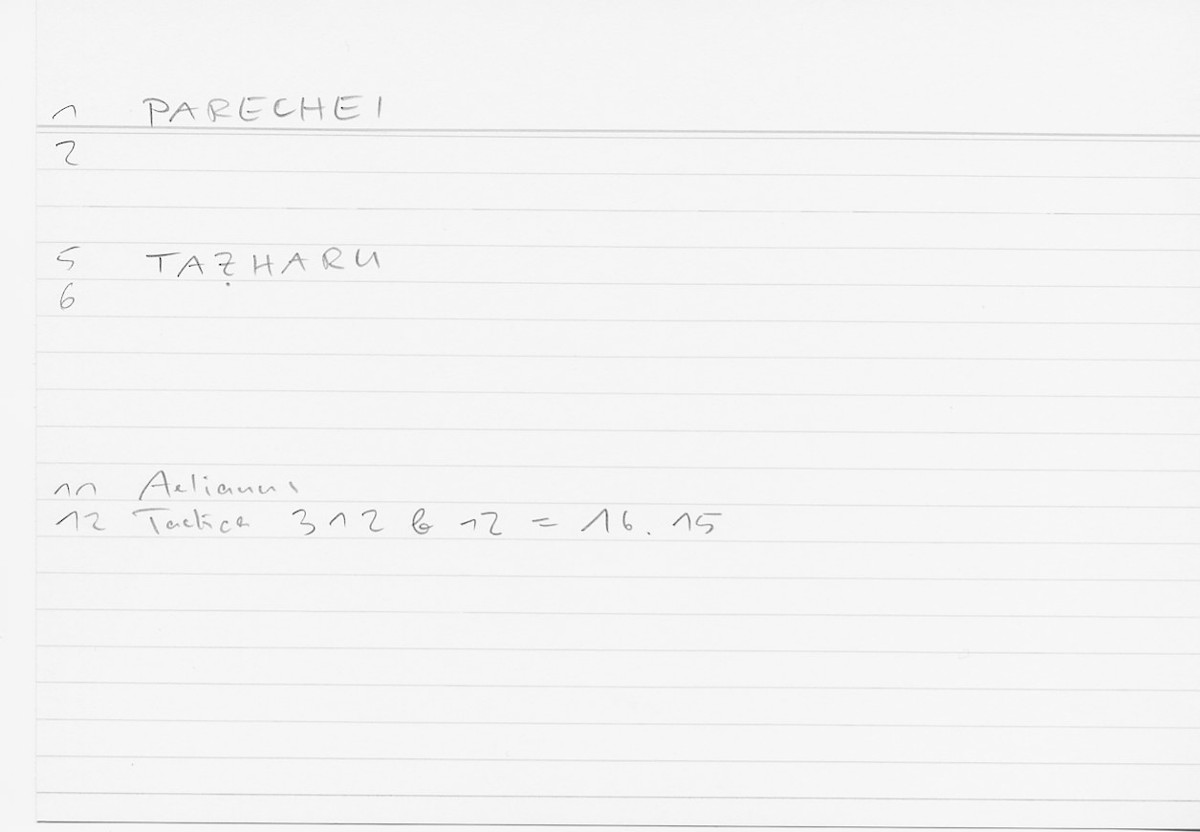 1 PARECHEI
2
5 TAẒHARU
6
11 Aelianus
12 Tactica 312 b 12 = 16.15